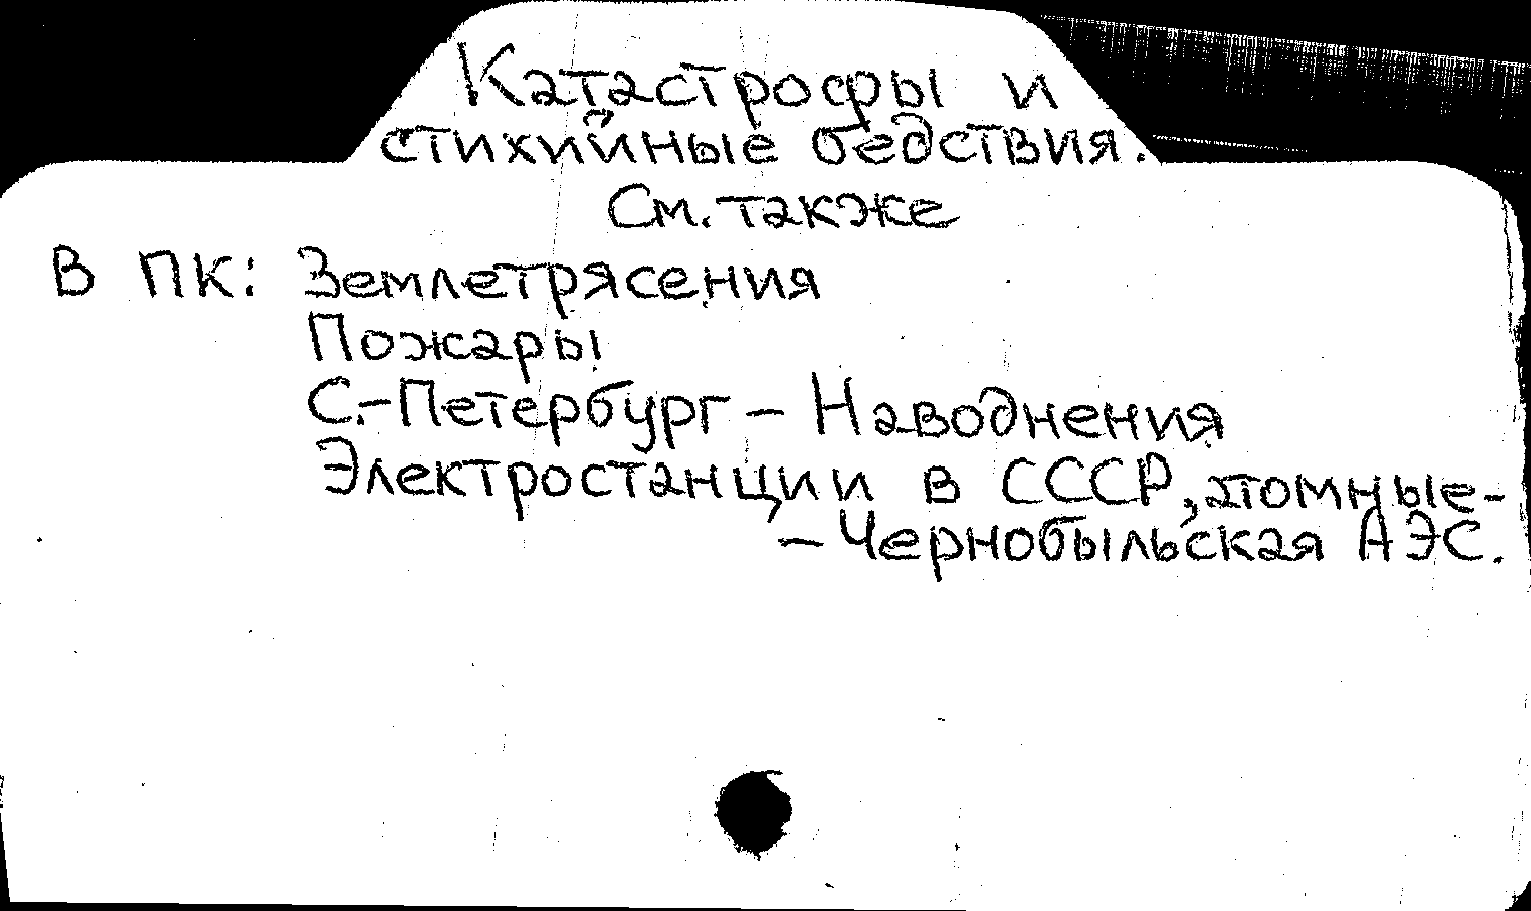 Катастрофы и
стихийные бедствия.
См. также
В ПК: Землетрясения
Пожары
С.-Петербург – Наводнения
Электростанции в СССР, атомные-
– Чернобыльская АЭС.